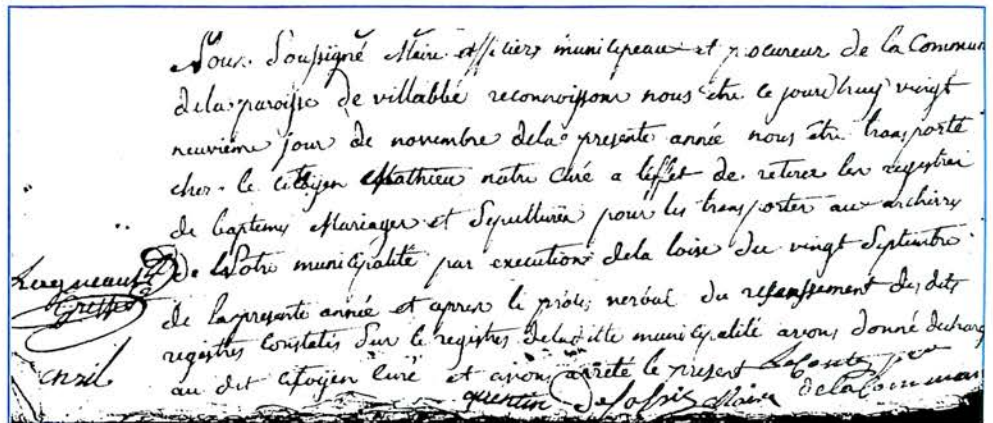 Nous Soussigné Maire officiers municipeau et procureur de la Commun
dela paroisse de villabbé reconnoissons nous être ce jourdhuy vingt
neuvieme jour de novembre dela presente année nous être transporté
cher le citoyen Mathieu notre Curé a l'effet de retirer les registres
de baptemes Mariages et Sepultures pour les transporter au archives
de Notre municipalité par execution dela loise du vingt Septembre
de la presente année et apres le procés verbal du des dits
registres Constatés Sur le registres de municipalité avons donné decharg
au dit Citoyen Curé et avons arrêté le present
quentin Maire dela Commun